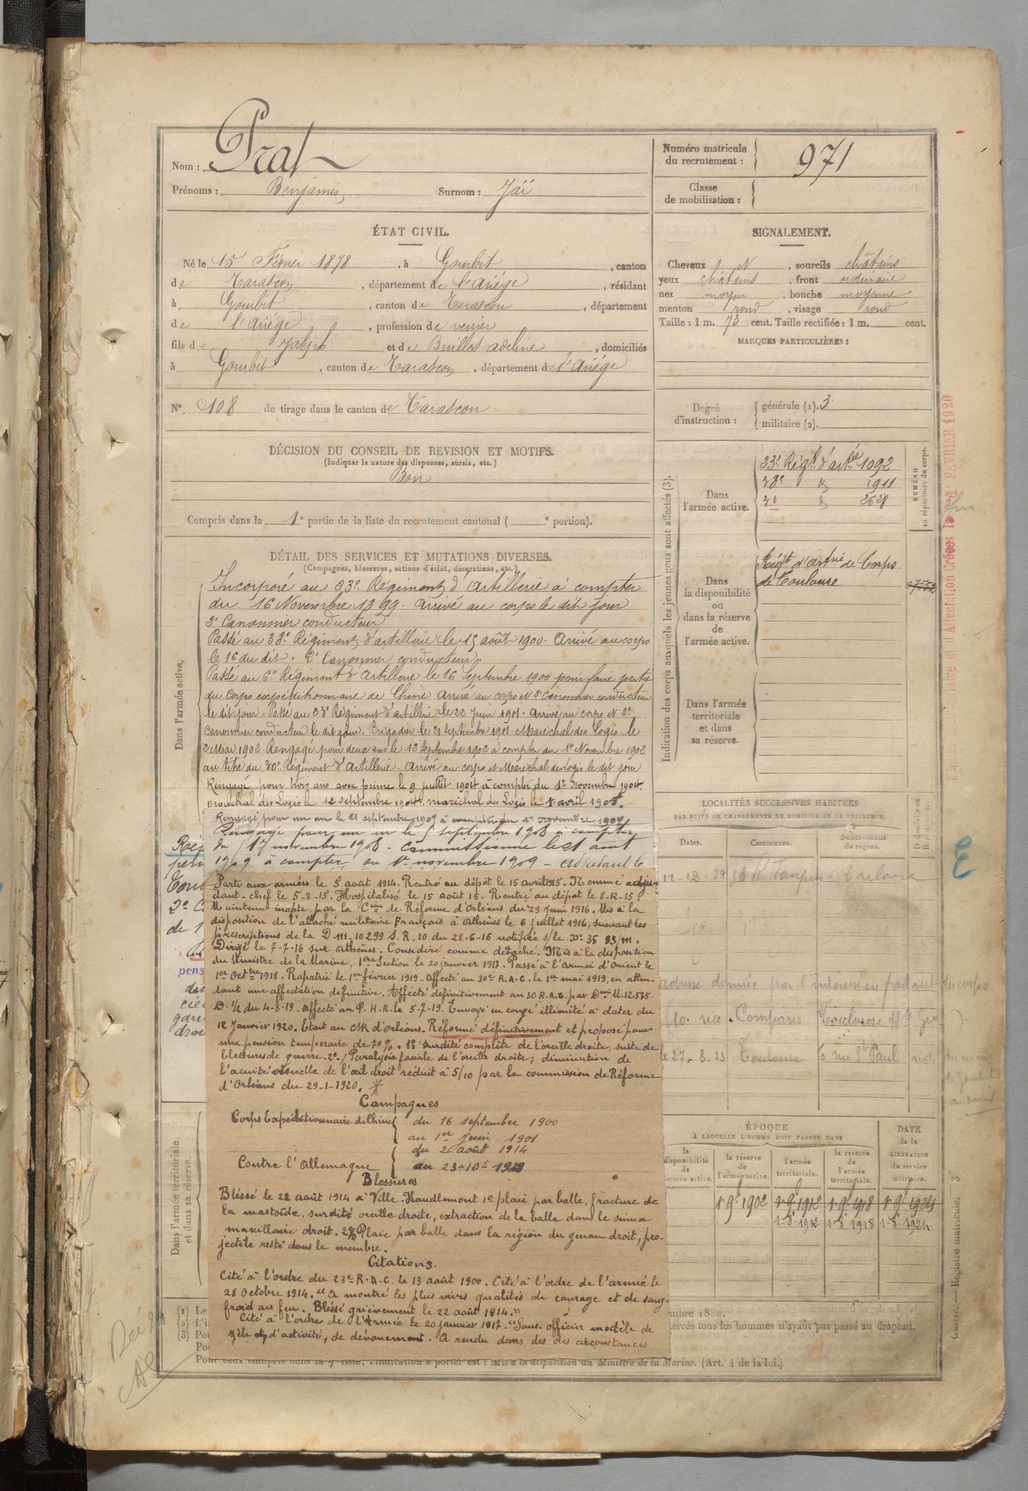 Nom : Prat
Prénoms : Benjamin Surnom : Jaï
Numéro matricule du recrutement : 971
Classe de mobilisation :
ÉTAT CIVIL.
Né le 15 Février 1878, à Gourbit, canton
de Tarascon, département de l'Ariége, résidant
à Gourbit, canton de Tarascon, département
de l'Ariége, profession de
fils de Joseph et de adeline, domiciliés
à Gourbit, canton de Tarascon, département de l'Ariége
N° 108 de tirage dans le canton de Tarascon
DÉCISION DU CONSEIL DE REVISION ET MOTIFS.
(Indiquer la nature des dispenses, sursis, etc.)
Bon
Compris dans la 1e partie de la liste du recrutement cantonal ( e portion).
SIGNALEMENT.
Cheveux, sourcils châtains
yeux châtains, front ordinaire
nez moyen, bouche moyenne
menton rond, visage rond
Taille : 1 m. 73 cent. Taille rectifiée : 1 m. cent.
MARQUES PARTICULIÈRES :
Degré d'instruction : générale (1). 3
militaire (2).
DÉTAIL DES SERVICES ET MUTATIONS DIVERSES.
(Campagnes, blessures, actions d'éclat, décorations, etc.)
Dans l'armée active.
Incorporé au 23e Régiment d'Artillerie à compter
du 16 Novembre 1899. Arrivé au corps le dit jour
2e Canonnier conducteur
Passé au 38e Régiment d'artillerie le 15 août 1900. Arrivé au corps
le 16 du dit. 2e Canonnier conducteur
Passé au 6e Régiment d'Artillerie le 16 septembre 1900 pour faire partie
du Corps expéditionnaire de Chine Arrivé au corps et 2e Canonnier conducteur
le dit jour. Passé au 23e Régiment d'artillerie le 22 Juin 1901. Arrivé au corps et 2e
Canonnier conducteur le dit jour. Brigadier le 21 septembre 1901 Maréchal des Logis le
2 Mai 1902. Rengagé pour deux ans le 13 Septembre 1902 à compter du 1er Novembre 1902
au titre du 30e Régiment d'Artillerie. Arrivé au corps et Maréchal des Logis le dit jour
Rengagé pour trois ans avec prime le 9 juillet 1904 à compter du 1er Novembre 1904.
maréchal des Logis le 12 septembre 1904. maréchal des Logis le 1er avril 1905.
Rengagé pour un an le 21 septembre 1907 à compter du 1er novembre 1907
Rengagé pour un an le septembre 1908 à compter
du 1er novembre 1908 - Commissionné le 21 août
1909 à compter du 1er novembre 1909 - adjudant le
Parti aux armées le 5 août 1914. Rentré au dépôt le 15 avril 1915. Nommé adju-
dant-chef le 5-8-15. Hospitalisé le 15 août 15. Rentré au dépôt le 8-12-15.
Maintenu inapte par la Con de Réforme d'Orléans du 29 Juin 1916. Mis à la
disposition de l'attaché militaire français à Athènes le 6 juillet 1916, suivant les
prescriptions de la D.M. 10299 S.R. 10 du 28-6-16 notifiée s/le Dr 35 93/M.
Dirigé le 7-7-16 sur Athènes. Considéré comme détaché. Mis à la disposition
du Ministre de la Marine, 1ère Section le 20 janvier 1917. Passé à l'Armée d'Orient le
1er Octbre 1918. Rapatrié le 1er février 1919. Affecté au 30e R.A.C. le 1er mai 1919, en atten-
dant une affectation définitive. Affecté définitivement au 30 R.A.C. par Don M.12.575
D.1/2 du 4-8-19. Affecté au P.H.R. le 5-7-19. Envoyé en congé illimité à dater du
12 Janvier 1920. Etant au CSR d'Orléans. Réformé définitivement et proposé pour
une pension temporaire de 20%. 1° Surdité complète de l'oreille droite, suite de
blessures de guerre. 2°/ Paralysie faciale de l'oreille droite ; diminution de
l'acuité visuelle de l'œil droit réduit à 5/10 par la commission de Réforme
d'Orléans du 29-1-1920.
Campagnes
Corps Expéditionnaire de Chine { du 16 septembre 1900
au 1er Juin 1901
Contre l'Allemagne { du 2 août 1914
au 23-10-1919
Blessures
Blessé le 22 août 1914 à Ville-Houdlemont 1e plaie par balle, fracture de
la mastoïde, surdité oreille droite, extraction de la balle dans le sinus
maxillaire droit. 2°/ Plaie par balle dans la région du genou droit, pro-
jectile resté dans le membre.
Citations.
Cité à l'ordre du 23e R.A.C. le 13 août 1900. Cité à l'ordre de l'armée le
28 Octobre 1914. "A montré les plus vives qualités de courage et de sang
froid au feu. Blessé grièvement le 22 août 1914."
Cité à l'ordre de l'Armée le 20 janvier 1917. "Sous-officier modèle de
zèle et d'activité, de dévouement. A rendu dans des des circonstances
Indication des corps auxquels les jeunes gens sont affectés (3).
NUMÉRO au répertoire du corps.
Dans l'armée active.
23e Régt d'artie 1092
38e d° 1911
30 d° 2628
Dans la disponibilité ou dans la réserve de l'armée active.
Régt d'artrie de Corps
de Toulouse
Dans l'armée territoriale et dans sa réserve.
LOCALITÉS SUCCESSIVES HABITÉES
PAR SUITE DE CHANGEMENTS DE DOMICILE OU DE RÉSIDENCE.
Dates. Communes. Subdivisions de région.
adresse donnée par l'intéressé
Toulouse
le 27.8.23 Toulouse 6 rue St Paul
ÉPOQUE
À LAQUELLE L'HOMME DOIT PASSER DANS
la disponibilité de l'armée active. la réserve de l'armée active. l'armée territoriale. la réserve de l'armée territoriale.
DATE de la LIBÉRATION du service militaire.
1-9bre 1902 1-9bre 1912 1-9bre 1918 1-9bre 1924
Dans l'armée territoriale et dans sa réserve.
E
Registre matricule.
(1) Le
(2) L'i
(3) Pou
ercés tous les hommes n'ayant pas passé au drapeau.
Pour ceux compris dans la 7e liste, l'indication à porter est : Mis à la disposition du Ministre de la Marine. (Art. 4 de la loi.)